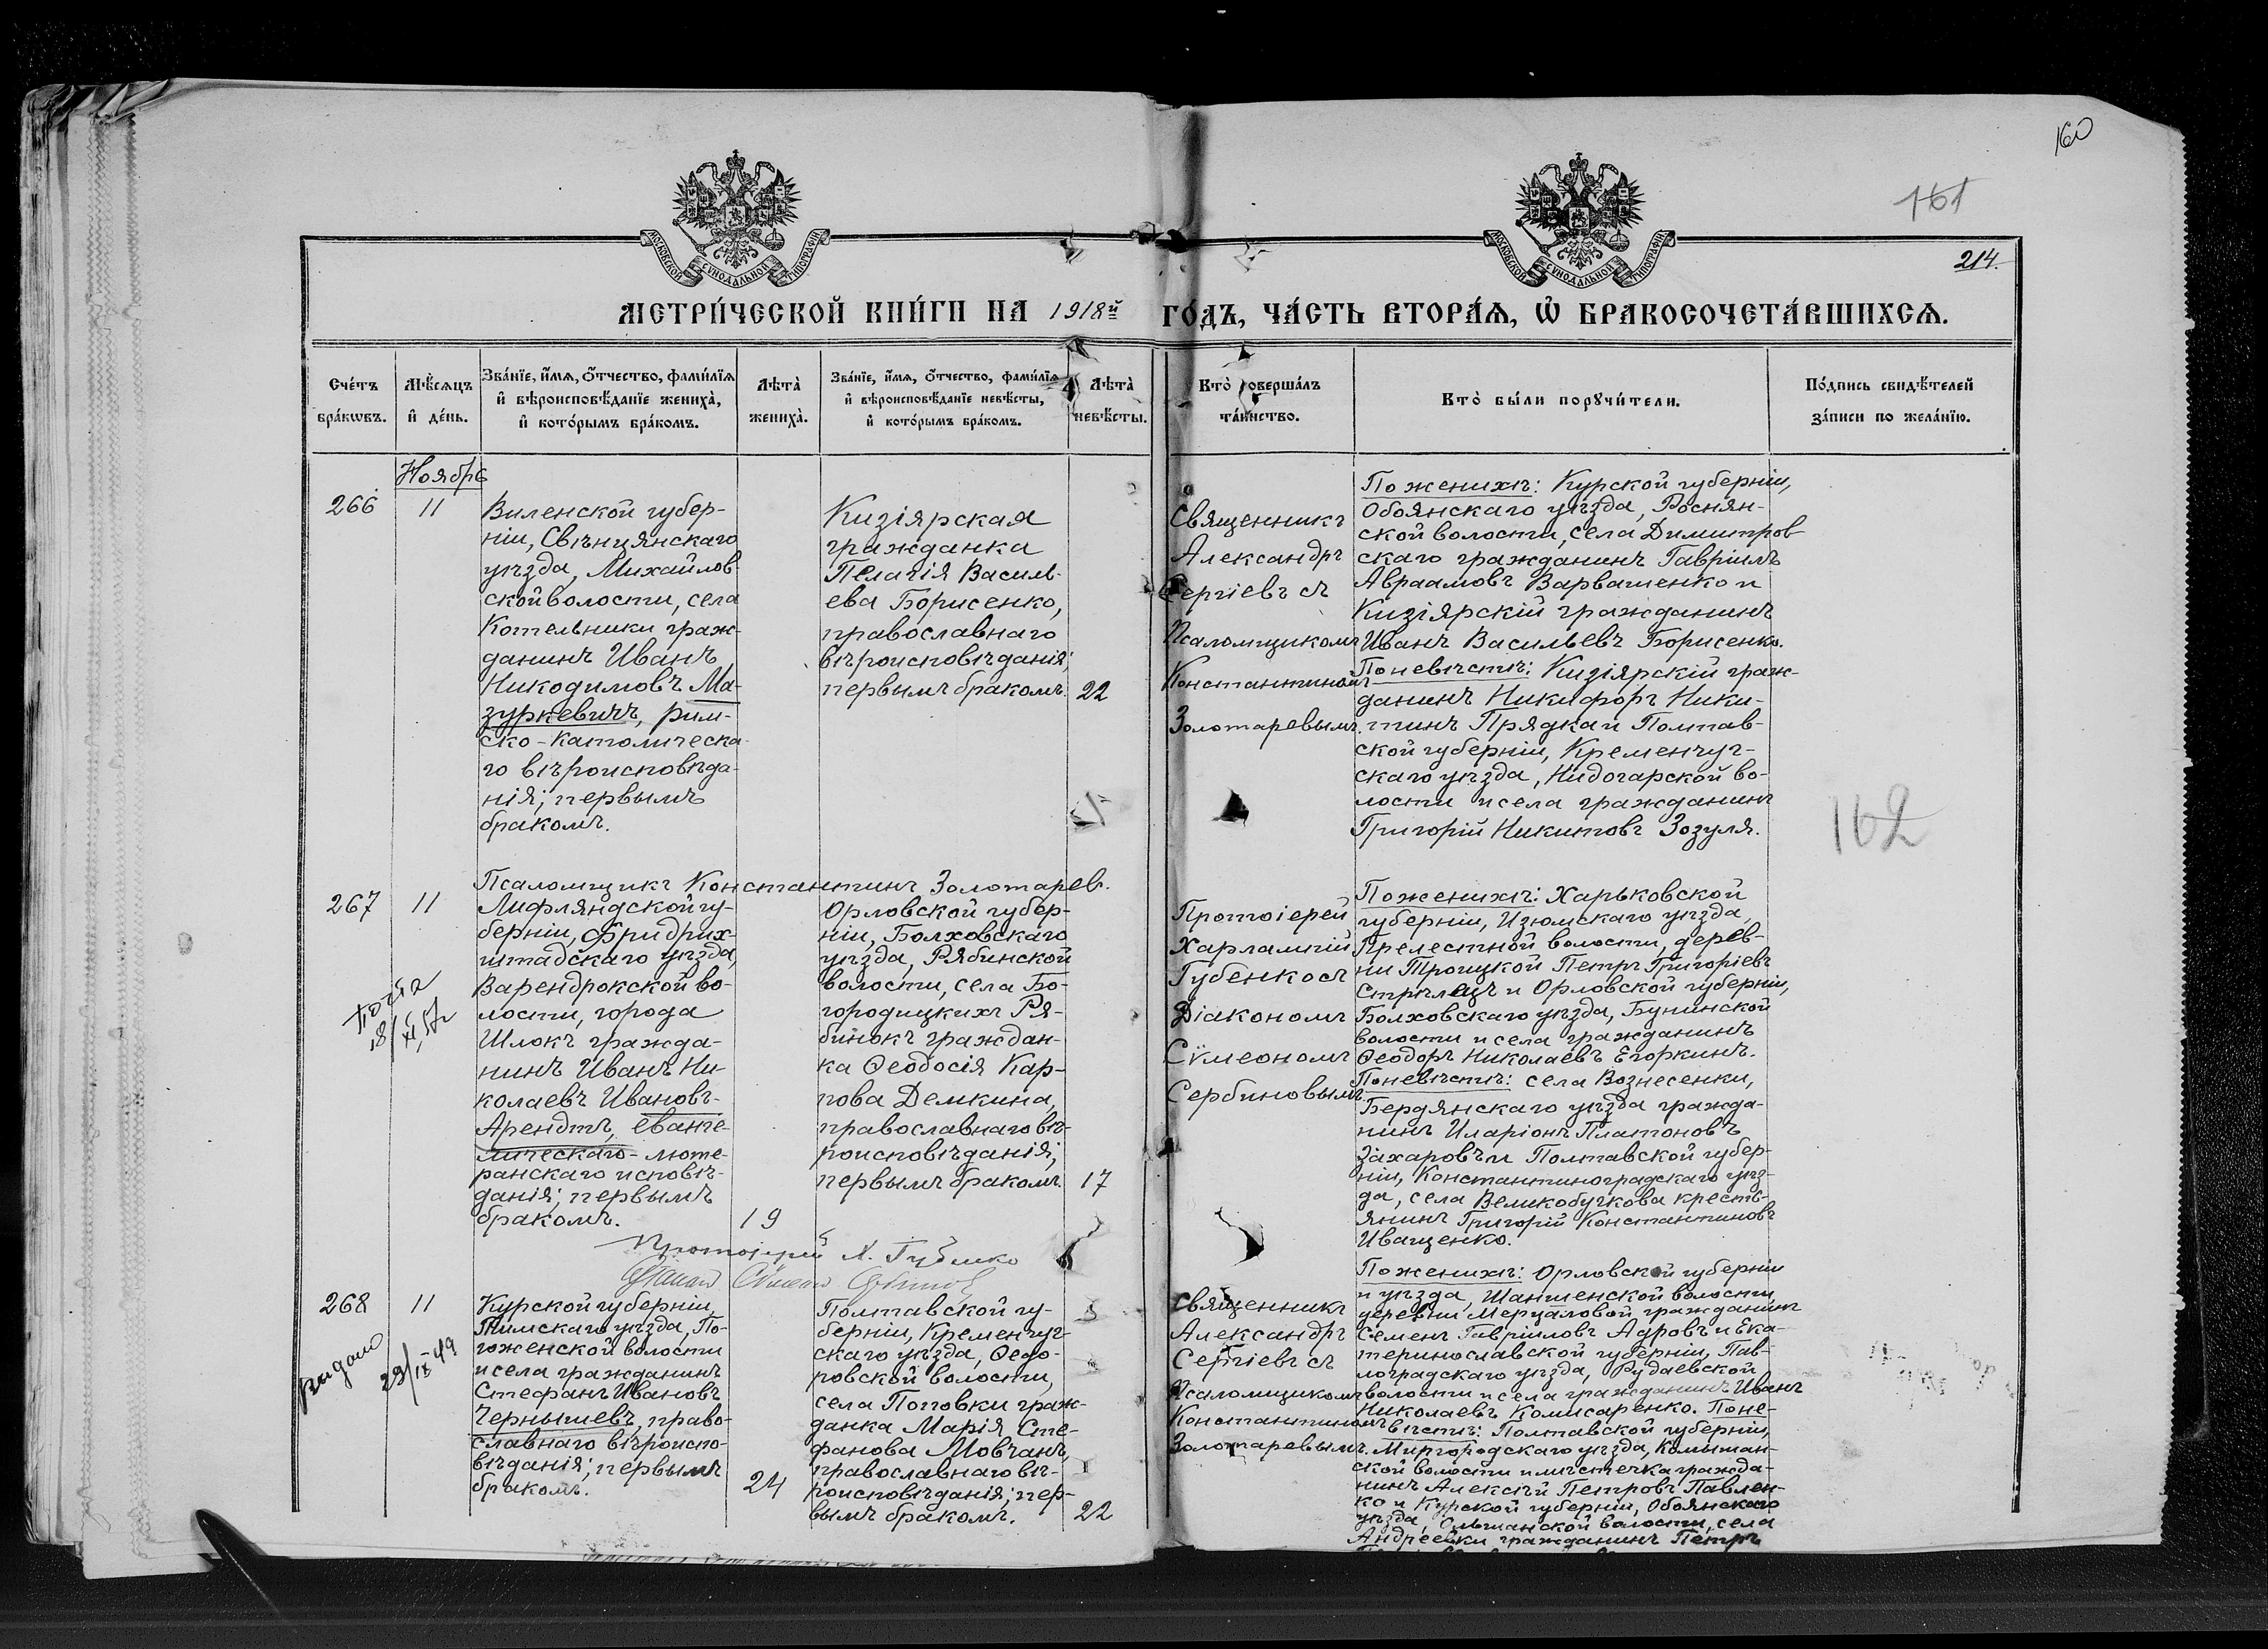 160
161
214.
МОСКОВСКОЙ СѴНОДАЛЬНОЙ ТИПОГРАФІИ
МОСКОВСКОЙ СѴНОДАЛЬНОЙ ТИПОГРАФІИ
МЕТРИ́ЧЕСКОЙ КНИ́ГИ НА 1918й ГО́ДЪ, ЧА́СТЬ ВТОРА́Я, Ѡ҆ БРАКОСОЧЕТА́ВШИХСЯ.
Сче́тъ
бра́кѡвъ.
Мѣ́сяцъ
и҆ де́нь.
Зва́нїе, и҆́мя, ѻ҆́тчество, фами́лїя
и҆ вѣроисповѣ́данїе жениха̀,
и҆ кото́рымъ бра́комъ.
Лѣта̀
жениха̀.
Зва́нїе, и҆́мя, ѻ҆́тчество, фами́лїя
и҆ вѣроисповѣ́данїе невѣ́сты,
и҆ кото́рымъ бра́комъ.
Лѣта̀
невѣ́сты.
Кто̀ соверша́лъ
та́инство.
Кто̀ бы́ли порꙋчи́тели.
По́дпись свидѣ́телей
за́писи по жела́нїю.
Ноябрь
266
11
Виленской губер-
ніи, Свѣнцянскаго
уѣзда, Михайлов-
ской волости, села
Котельники граж-
данинъ Иванъ
Никодимовъ Ма-
зуркевичъ, рим-
ско-католическа-
го вѣроисповѣда-
нія; первымъ
бракомъ.
Кизіярская
гражданка
Пелагія Василь-
ева Борисенко,
православнаго
вѣроисповѣданія;
первымъ бракомъ.
22
Священникъ
Александръ
Сергіевъ съ
Псаломщикомъ
Константиномъ
Золотаревымъ.
По женихѣ: Курской губерніи,
Обоянскаго уѣзда, Роснян-
ской волости, села Димитров
скаго гражданинъ Гавріилъ
Авраамовъ Варвашенко и
Кизіярскій гражданинъ
Иванъ Васильевъ Борисенко.
По невѣстѣ: Кизіярскій граж-
данинъ Никифоръ Ники-
тинъ Прядка и Полтав-
ской губерніи, Кременчуг-
скаго уѣзда, Нидогарской во-
лости и села гражданинъ
Григорій Никитовъ Зозуля.
162
Псаломщикъ Константинъ Золотарев.
267
11
Лифляндской гу-
берніи, Фридрих-
штадскаго уѣзда,
Варендрокской во-
лости, города
Шлокъ гражда-
нинъ Иванъ Ни-
колаевъ Ивановъ-
Арендтъ, еванге-
лическаго-люте-
ранскаго исповѣ-
данія; первымъ
бракомъ.
19
Орловской губер-
ніи, Болховскаго
уѣзда, Рябинской
волости, села Бо-
городицкихъ Ря-
бинокъ граждан-
ка Ѳеодосія Кар-
пова Демкина,
православнаго вѣ-
роисповѣданія;
первымъ бракомъ.
17
Протоіерей
Харлампій
Губенко съ
Діакономъ
Сѵмеономъ
Сербиновымъ
По женихѣ: Харьковской
губерніи, Изюмскаго уѣзда,
Прелестной волости, дерев-
ни Троицкой Петръ Григоріевъ
Стрѣлецъ и Орловской губерніи,
Болховскаго уѣзда, Бунинской
волости и села гражданинъ
Ѳеодоръ Николаевъ Егоркинъ.
По невѣстѣ: села Вознесенки,
Бердянскаго уѣзда гражда-
нинъ Иларіонъ Платоновъ
Захаровъ и Полтавской губер-
ніи, Константиноградскаго уѣз-
да, села Великобучкова кресть-
янинъ Григорій Константиновъ
Иващенко.
Протоіерей Х. Губенко
268
11
выдано
29/IX 49
Курской губерніи,
Тимскаго уѣзда, По-
гоженской волости
и села гражданинъ
Стефанъ Ивановъ
Чернышевъ, право-
славнаго вѣроиспо-
вѣданія; первымъ
бракомъ.
24
Полтавской гу-
берніи, Кременчуг-
скаго уѣзда, Ѳедо-
ровской волости,
села Поповки граж-
данка Марія Сте-
фанова Мовчанъ,
православнаго вѣ-
роисповѣданія; пер-
вымъ бракомъ.
22
Священникъ
Александръ
Сергіевъ съ
Псаломщикомъ
Константиномъ
Золотаревымъ.
По женихѣ: Орловской губерніи
и уѣзда, волости,
деревни Мерцаловой гражданинъ
Семенъ Гавріиловъ Адровъ и Ека-
теринославской губерніи, Пав-
лоградскаго уѣзда, Рудаевской
волости и села гражданинъ Иванъ
Николаевъ Комисаренко. По не-
вѣстѣ: Полтавской губерніи,
Миргородскаго уѣзда, Комышан-
ской волости и мѣстечка гражда-
нинъ Алексѣй Петровъ Павлен-
ко и Курской губерніи, Обоянскаго
уѣзда, Ольшанской волости, села
Андреевки гражданинъ Петръ